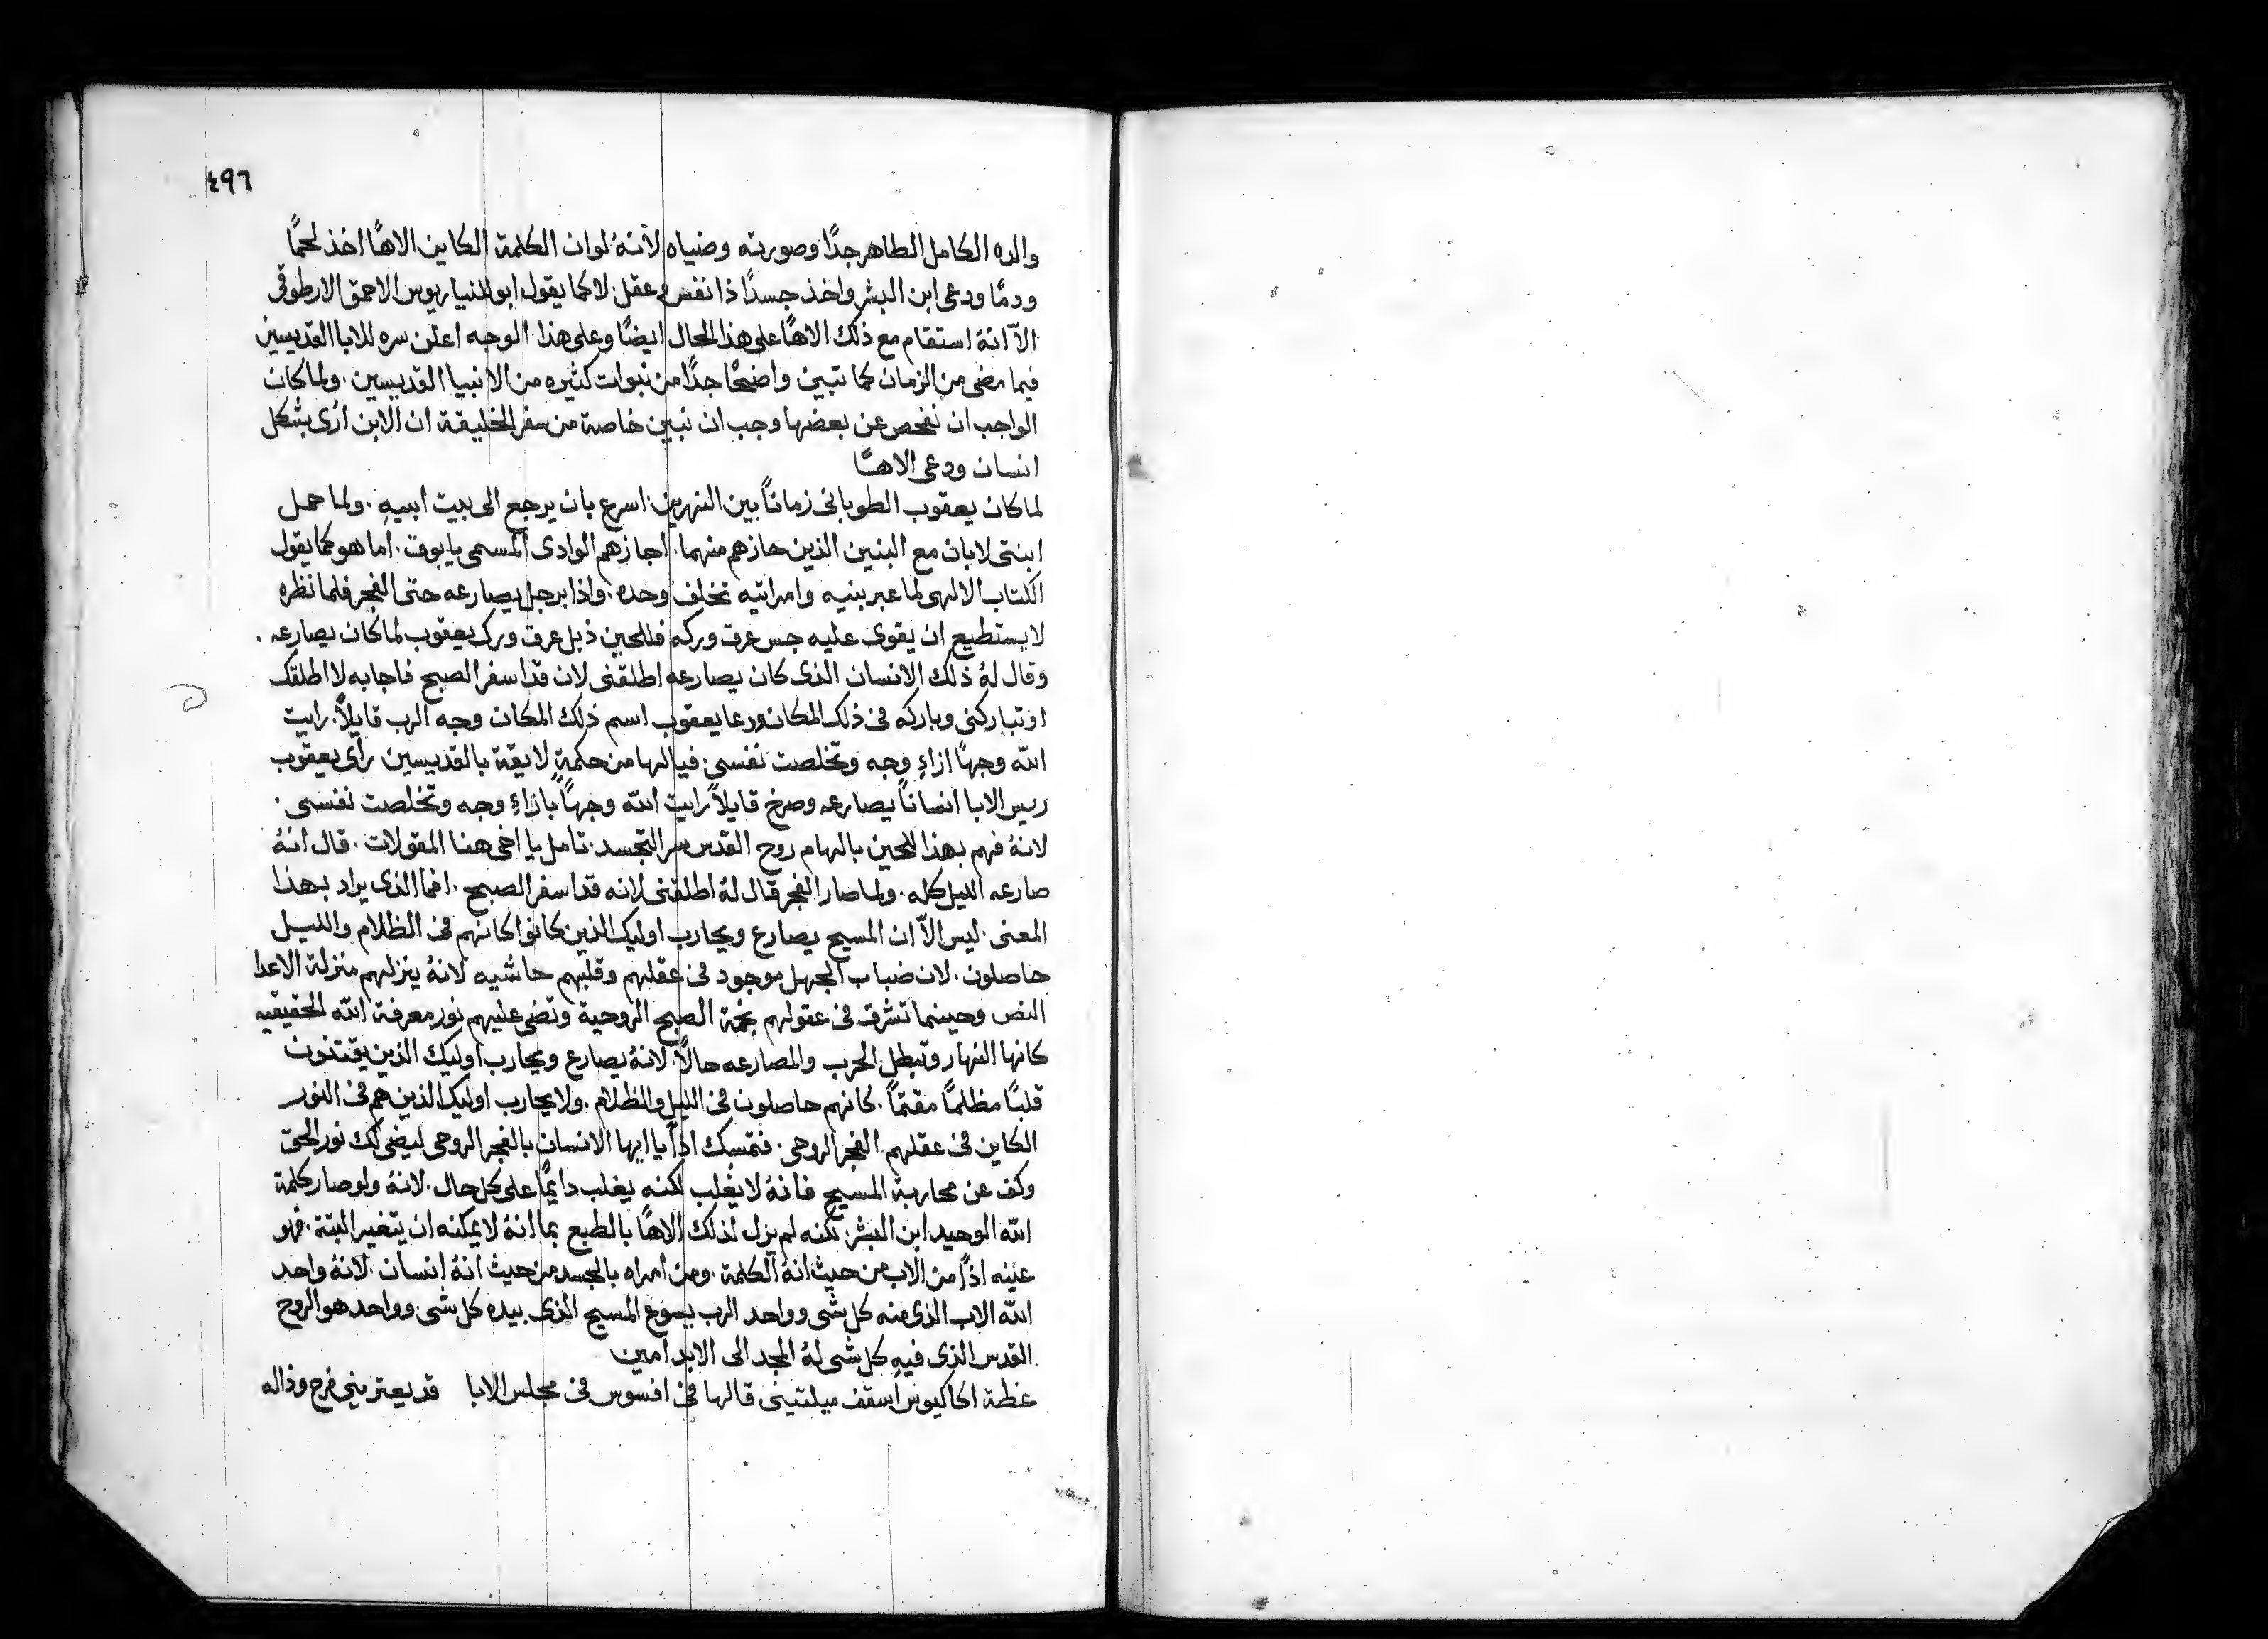 ٤٩٦
والده الكامل الطاهر جدًا وصورته وضياه لانهُ لوان الكلمة الكاين الاهًا اخذ لحمًا
ودمًا ودعى ابن البشر واخذ جسدًا ذا نفس وعقل لا كما يقول ابوالنياريوس الاحمق الارطوقى
الاّ انهُ استقام مع ذلك الاهًا على هذا الحال ايضًا وعلى هذا الوجه اعلن سره للابا القديسين
فيما مضى من الزمان كما تبين واضحًا جدًا من نبوات كثيره من الانبيا القديسين . ولما كان
الواجب ان نفحص عن بعضها وجب ان نبين خاصة من سفر الخليقة ان الابن أرى بشكل
انسان ودعى الاهًا
لما كان يعقوب الطوبانى زمانًا بين النهرين . اسرع بان يرجع الى بيت ابيهِ . ولما حمل
ابنتى لابان مع البنين الذين حازهم منهما . اجازهم الوادى المسمى يابوق . اما هو كما يقول
الكتاب الالهى لما عبر بنيه وامراتيه تخلف وحده . واذا برجل يصارعه حتى الفجر فلما نظره
لا يستطيع ان يقوى عليه جس عرق وركه فللحين ذبل عرق ورك يعقوب لما كان يصارعه .
وقال لهُ ذلك الانسان الذى كان يصارعه اطلقنى لان قد اسفر الصبح فاجابه لا اطلقك
او تباركنى وباركه فى ذلك المكان ودعا يعقوب اسم ذلك المكان وجه الرب قايلاً . رايت
اللّه وجهًا ازاءِ وجه وتخلصت نفسى . فيا لها من حكمةٍ لايقة بالقديسين رأى يعقوب
ريس الابا انسانًا يصارعه وصرخ قايلاً رايت اللّه وجهًا بازاءِ وجه وتخلصت نفسى .
لانهُ فهم بهذا الحين بالهام روح القدس سر التجسد . تامل يا اخى هنا المقولات . قال انهُ
صارعه الليل كله . ولما صار الفجر قال لهُ اطلقنى لانه قد اسفر الصبح . افما الذى يراد بهذا
المعنى . ليس الاّ ان المسيح يصارع ويحارب اوليك الذين كانوا كانهم فى الظلام والليل
حاصلون . لان ضباب الجهل موجود فى عقلهم وقلبهم حاشيه لانهُ ينزلهم منزلة الاعدا
النص وحينما تشرق فى عقولهم نجمة الصبح الروحية وتضى عليهم نور معرفة اللّه الحقيقيه
كانها النهار وتبطل الحرب والمصارعه حالاً . لانهُ يصارع ويحارب اوليك الذين يقتنون
قلبًا مظلمًا مقتمًا . كانهم حاصلون فى الليل والظلام . ولا يحارب اوليك الذين هم فى النور
الكاين فى عقلهم الفجر الروحى . فتمسك اذًا يا ايها الانسان بالفجر الروحى ليضى لك نور الحق
وكف عن محاربة المسيح فانهُ لا يغلب لكنه يغلب دايمًا على كل حال . لانهُ ولو صار كلمة
اللّه الوحيد ابن البشر لكنه لم يزل لذلك الاهًا بالطبع بما انهُ لا يمكنه ان يتغير البتة . فهو
عينه اذًا من الاب من حيث انهُ الكلمة . ومن امراه بالجسد من حيث انهُ انسان . لانهُ واحد
اللّه الاب الذى منه كل شى وواحد الرب يسوع المسيح الذى بيده كل شى . وواحد هو الروح
القدس الذى فيهِ كل شى لهُ المجد الى الابد امين
عظة اكاكيوس اسقف ميلتينى قالها فى افسوس فى مجلس الابا قد يعترينى فرح وذاله